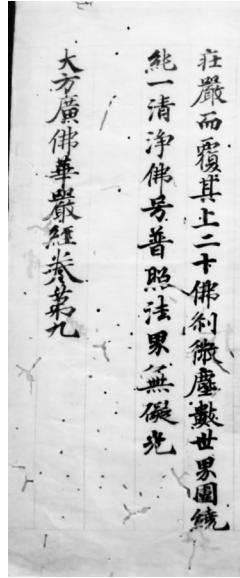 庄嚴而覆其上二十佛刹微塵數世界圍繞
純一清浄佛号普照法界無礙光
大方廣佛華嚴經卷第九